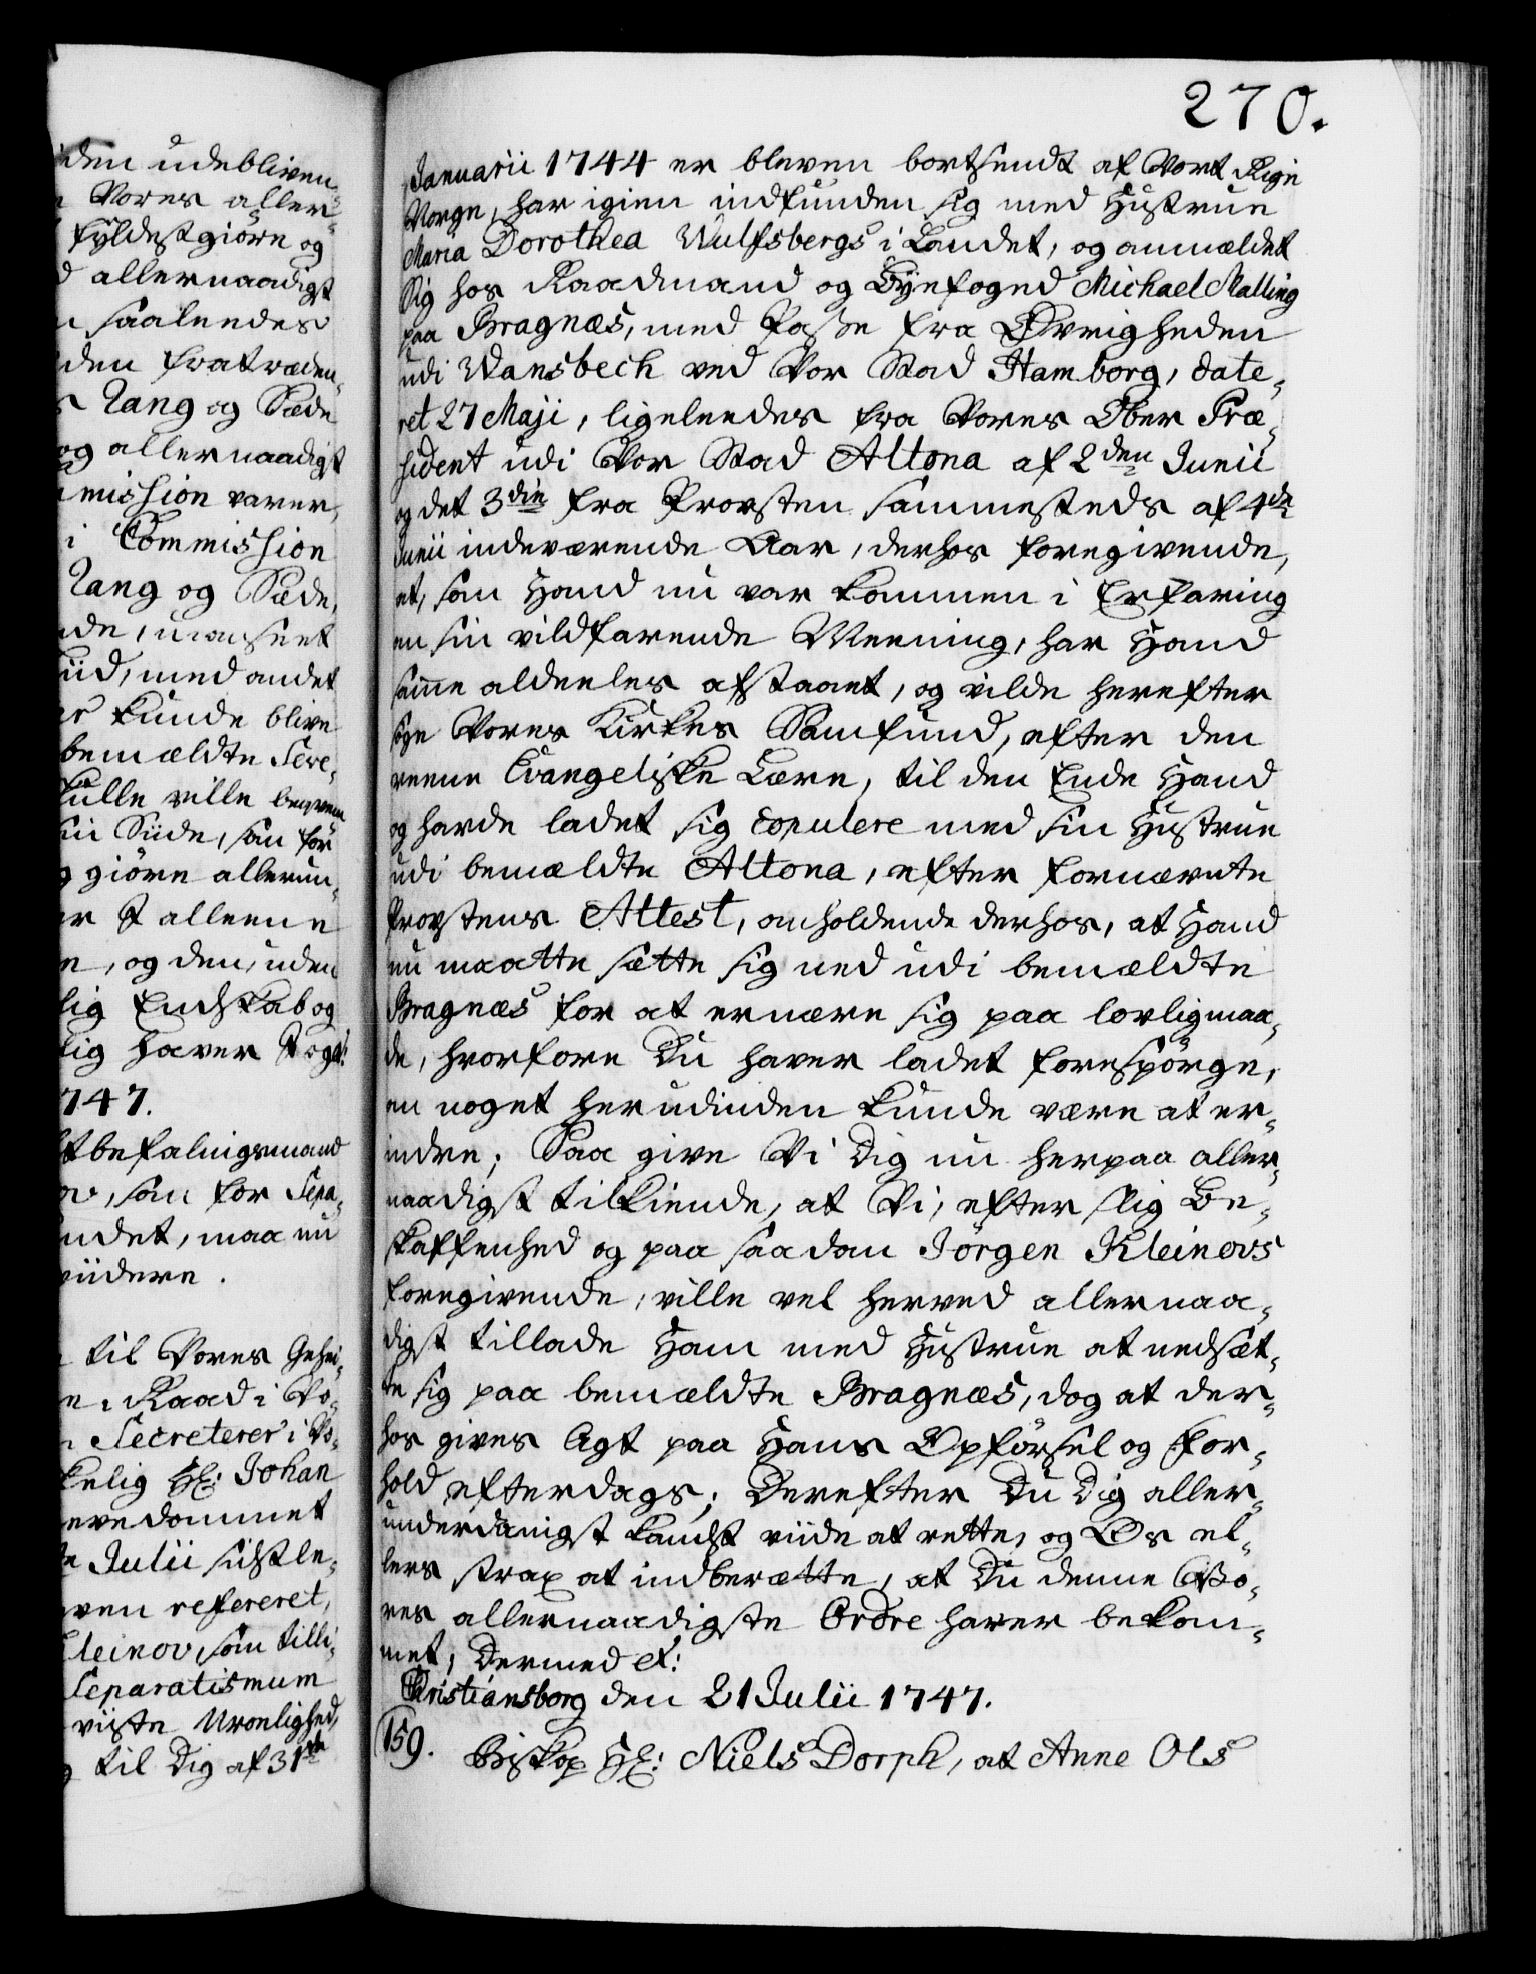 270.
den udebliven
Vores aller-
fyldestgiøre og
allernaadigst
saaleedes
den fratræden-
Rang og Sæde
og allernaadigst
mission varer,
i Commission
Rang og Sæde,
de, uanseet
tiid, med andet
kunde blive
bemældte
ville
Siide, som for
giøre allerun-
alleene
, og den, uden
lig Endskab og
lig haver
747.
tbefalingsmand
, som for Sepa-
ndet, maa nu
viidere.
til Vores Gehei-
Raad i Vo-
Secreterer i Vo-
kelig Hr: Johan
evedommet
Julii sidstle-
ven refereret,
leinov, som tilli-
Separatismum
viiste Uroelighed,
til Dig af 31te
Januarii 1744 er bleven bortsendt af Vort Rige
Norge, har igien indfunden sig med Hustrue
Maria Dorothea Wulfsbergs i Landet, og anmældet
sig hos Raadmand og Byefoged Michael Malling
paa Bragnæs, med Passe fra Øvrigheden
udi Wansbech ved Vor Stad Hamborg, date-
ret 27 Maji, ligeleedes fra Vores Ober Præ-
sident udi Vor Stad Altona af 2den Junii
og det 3die fra Provsten sammesteds af 4de
Junii indeværende Aar, derhos foregivende,
at, som Hand nu var kommen i Erfaring
om sin vildfarende Meening, har Hand
samme aldeeles afstaaet, og vilde herefter
søge Vores Kirkes Samfund, efter den
reene Evangeliske Lære, til den Ende Hand
og havde ladet sig copulere med sin Hustrue
udi bemældte Altona, efter fornævnte
Provstens Attest, anholdende derhos, at Hand
nu maatte sætte sig ned udi bemældte
Bragnæs for at ernære sig paa lovlig maa-
de, hvorfore Du haver ladet forespørge,
om noget herudinden kunde være at er-
indre; Saa give Vi Dig nu herpaa aller-
naadigst tilkiende, at Vi, efter slig Be-
skaffenhed og paa saadan Jørgen Kleinovs
foregivende, ville vel herved allernaa-
digst tillade Ham med Hustrue at nedsæt-
te sig paa bemældte Bragnæs, dog at der-
hos gives Agt paa Hans Opførsel og For-
hold efterdags; Derefter Du Dig aller-
underdanigst kandst viide at rette, og Os el-
lers strax at indberætte, at Du denne Vo-
res allernaadigste Ordre haver bekom-
met, Dermed &:
Christiansborg den 21 Julii 1747.
159. Biskop Hr: Niels Dorph, at Anne Ols